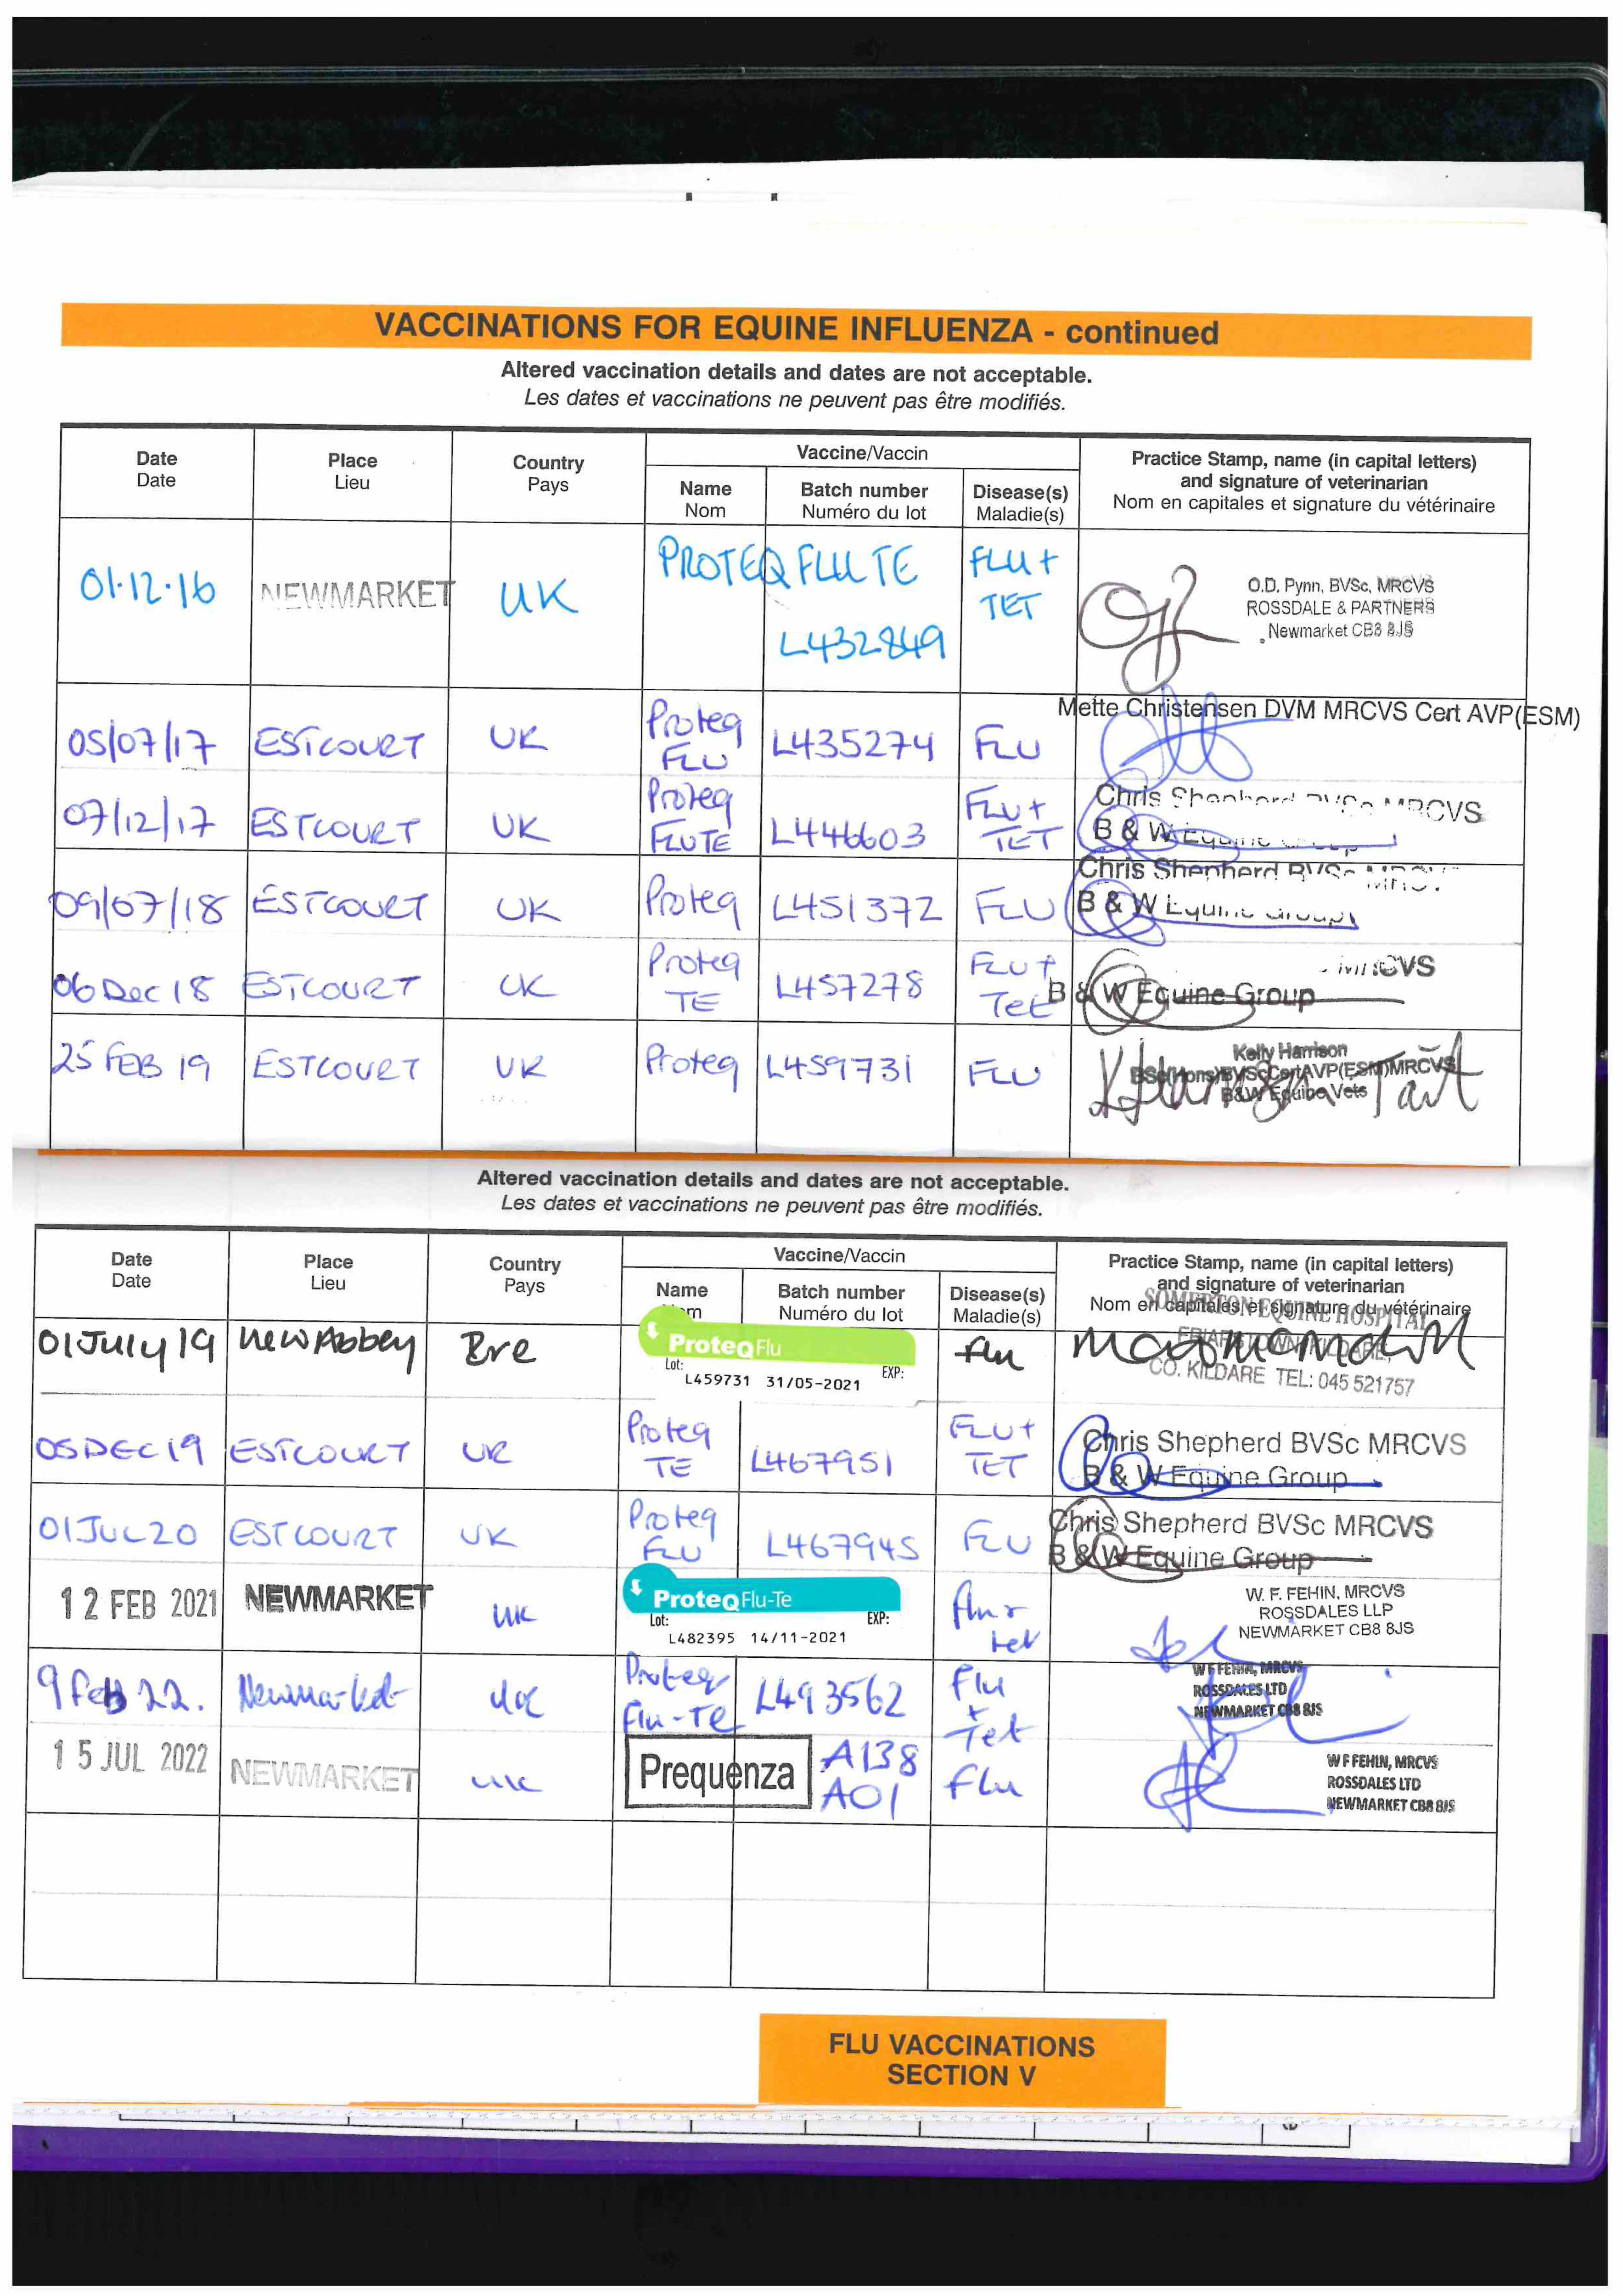 VACCINATIONS FOR EQUINE INFLUENZA - continued
Altered vaccination details and dates are not acceptable.
Les dates et vaccinations ne peuvent pas être modifiés.
Date
Date
Place
Lieu
Country
Pays
Vaccine/Vaccin
Name
Nom
Batch number
Numéro du lot
Disease(s)
Maladie(s)
Practice Stamp, name (in capital letters)
and signature of veterinarian
Nom en capitales et signature du vétérinaire
01.12.16 NEWMARKET UK PROTEQ FLU TE L432849 FLU + TET
O.D. Pynn, BVSc, MRCVS
ROSSDALE & PARTNERS
Newmarket CB8 8JS
05/07/17 ESTCOURT UK Proteq FLU L435274 FLU
Mette Christensen DVM MRCVS Cert AVP(ESM)
07/12/17 ESTCOURT UK Proteq FLUTE L446603 FLU + TET
Chris MRCVS
B & W Equine
09/07/18 ESTCOURT UK Proteq L451372 FLU
Chris Shepherd BVSc
B & W Equine Group
06 Dec 18 ESTCOURT UK Proteq TE L457278 FLU + Tet
MRCVS
B & W Equine Group
25 FEB 19 ESTCOURT UK Proteq L459731 FLU
Kelly Harrison
BSc(Hons)BVScCertAVP(ESM)MRCVS
B&W Equine Vets
Altered vaccination details and dates are not acceptable.
Les dates et vaccinations ne peuvent pas être modifiés.
Date
Date
Place
Lieu
Country
Pays
Vaccine/Vaccin
Name
Batch number
Numéro du lot
Disease(s)
Maladie(s)
Practice Stamp, name (in capital letters)
and signature of veterinarian
Nom en capitales et signature du vétérinaire
SOMERTON EQUINE HOSPITAL
FRIARSTOWN, KILDARE,
CO. KILDARE TEL: 045 521757
01 July 19 New Abbey Ire ProteqFlu flu
Lot: EXP:
L459731 31/05-2021
05 DEC 19 ESTCOURT UK Proteq TE L467951 FLU + TET
Chris Shepherd BVSc MRCVS
B & W Equine Group
01 JUL 20 ESTCOURT UK Proteq FLU L467945 FLU
Chris Shepherd BVSc MRCVS
B & W Equine Group
12 FEB 2021 NEWMARKET UK ProteqFlu-Te flu + tet
Lot: EXP:
L482395 14/11-2021
W. F. FEHIN, MRCVS
ROSSDALES LLP
NEWMARKET CB8 8JS
9 Feb 22. Newmarket UK Proteq Flu-Te L493562 Flu + Tet
W F FEHIN, MRCVS
ROSSDALES LTD
NEWMARKET CB8 8JS
15 JUL 2022 NEWMARKET UK Prequenza A138 A01 Flu
W F FEHIN, MRCVS
ROSSDALES LTD
NEWMARKET CB8 8JS
FLU VACCINATIONS
SECTION V